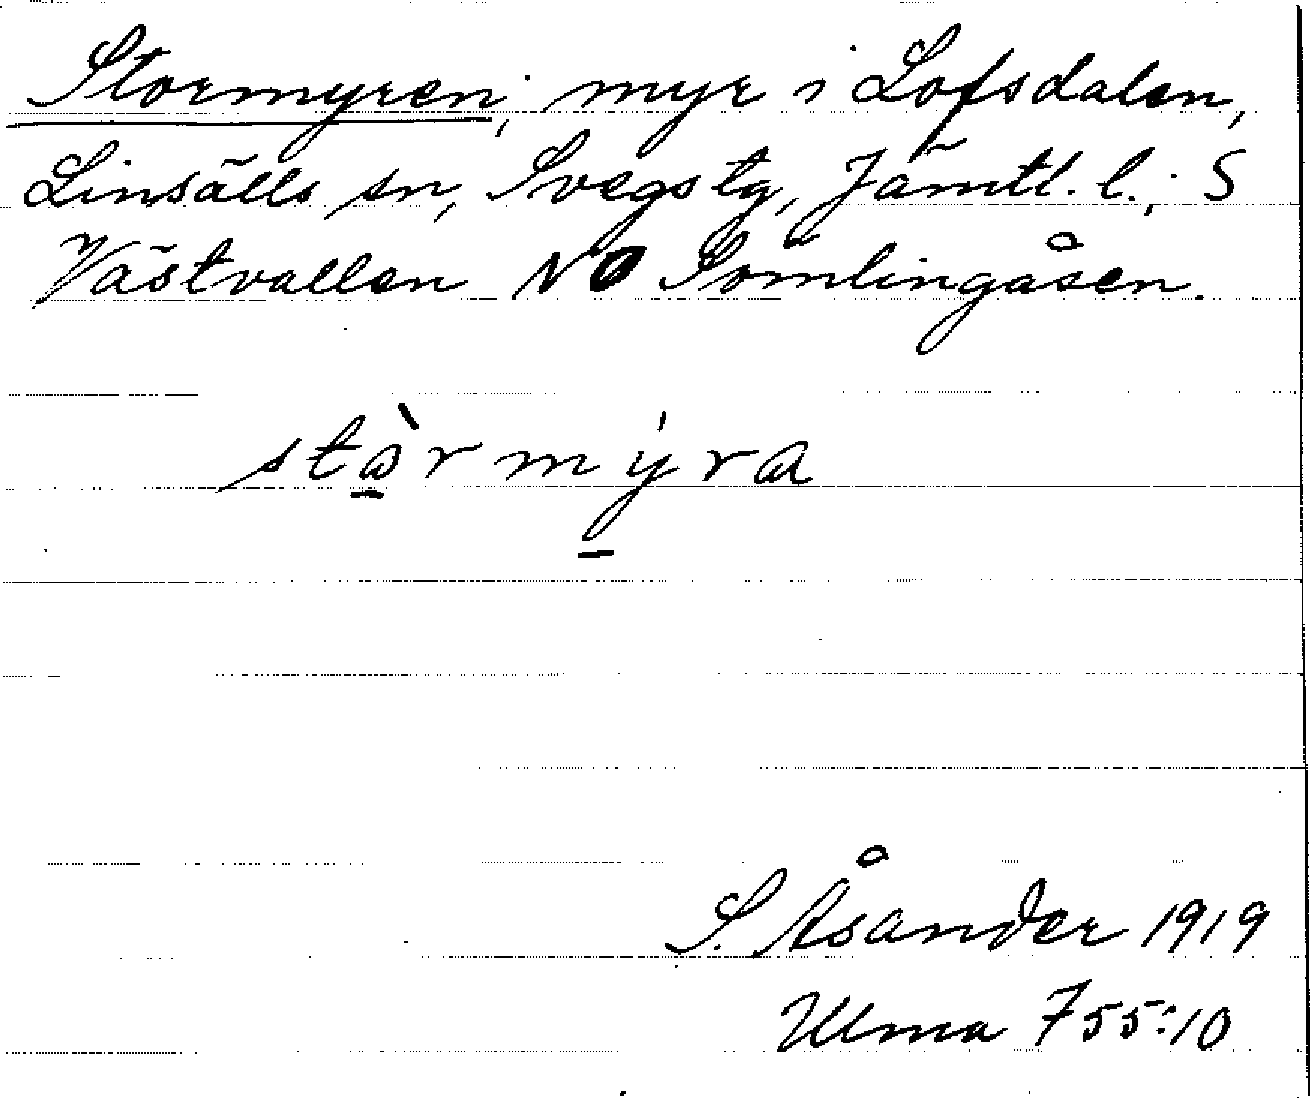 Stormyren; myr i Lofsdalen,
Linsälls sn, Svegs tg, Jämtl. l.; S
Västvallen NO Sömlingåsen.
stɷ̀rmýra
S. Åsander 1919
Ulma 755:10